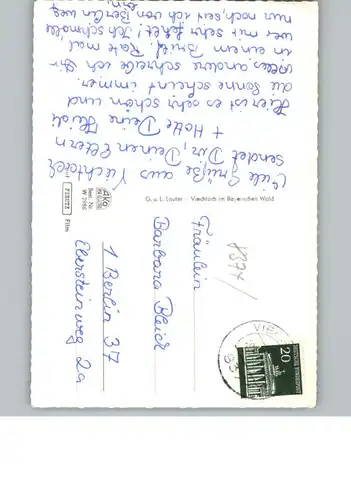 Viele Grüße aus Viechtach
sendet Dir, Deinen Eltern
+ Hotte Deine Heidi
Hier ist es sehr schön und
die Sonne scheint immer.
alles andere schreibe ich Dir
in einem Brief. Rate mal
wer mir sehr fehlt! Ich schmolle
nur noch, seit ich von Berlin weg
bin.
G. u. L. Lauter - Viechtach im Bayerischen Wald
äko
KARTE
Best. Nr.
W 3986
PERUTZ Film
8374/
Fräulein
Barbara Kleid
1 Berlin 37
Ebersteinweg 2a
VIE
20
DEUTSCHE BUNDESPOST